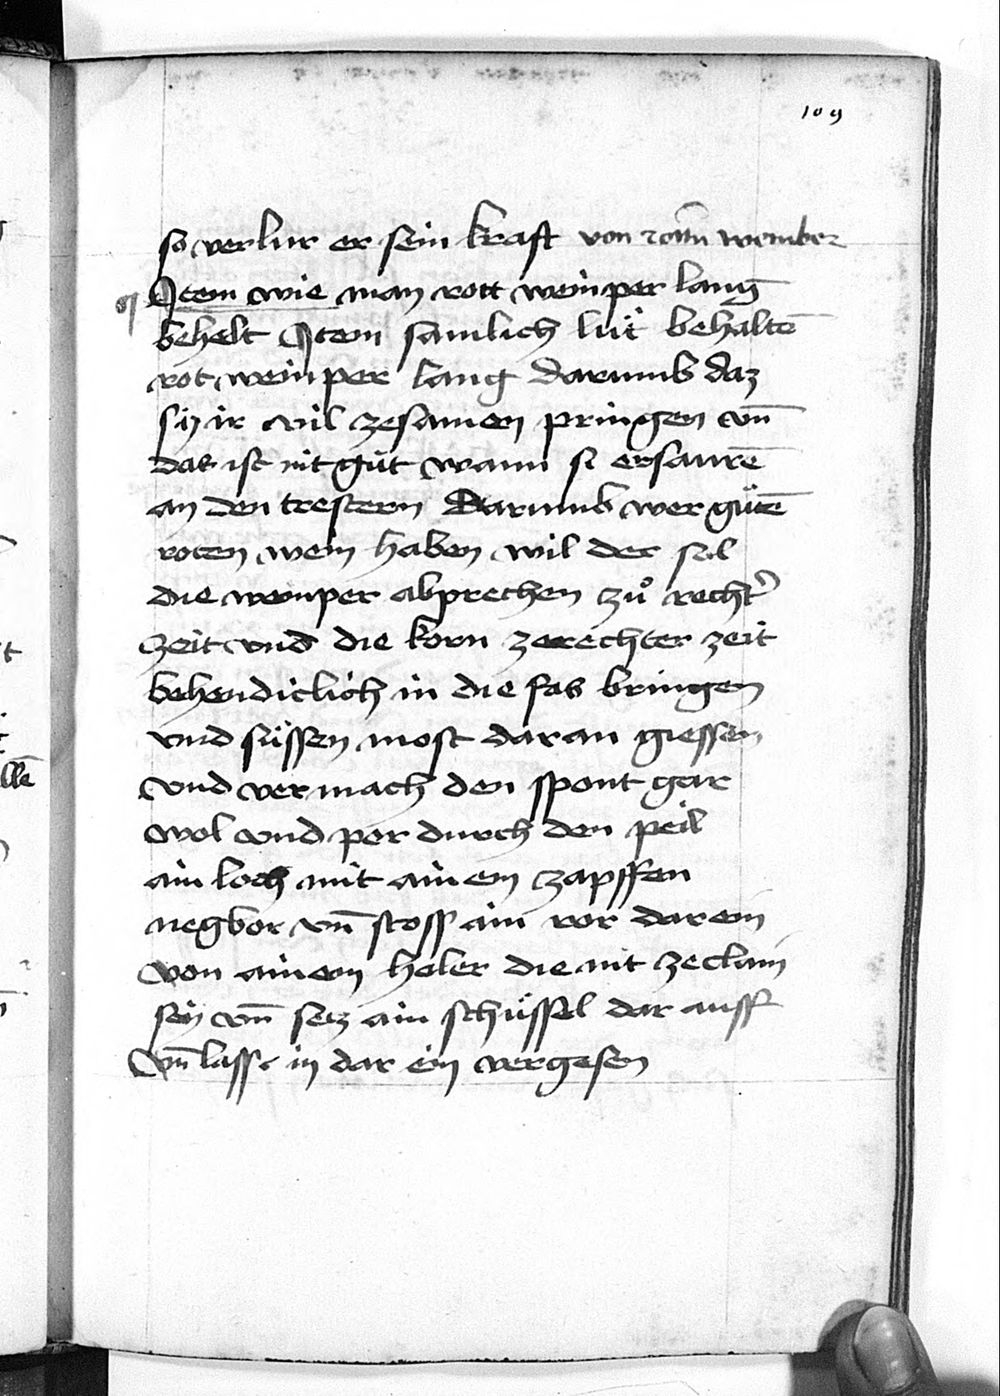 109
so verlur er sein kraft von rottm weinber
Item wie man rott weinper lang
behelt Item sämlich lüt behaltē
rot weinper lang darumb daz
sy ir vil zesamen pringen vn̄
das ist nit güt wann si ersaurē
an den trestern Darumb wer gütē
roten wein haben wil der sol
die weinper abprechen zů recht͛
zeit vnd die korn zerechter zeit
behendiclich in die fas bringen
vnd süssen most daran giessen
vnd vermach den spont gar
wol vnd por durch den peil
ain loch mit ainem zapffen
negbor vn̄ stoss ain ror dar ein
von ainem holer die nit ze clain
sey vn̄ secz ain schüssel dar auff
vn̄ lass in dar ein vergesen